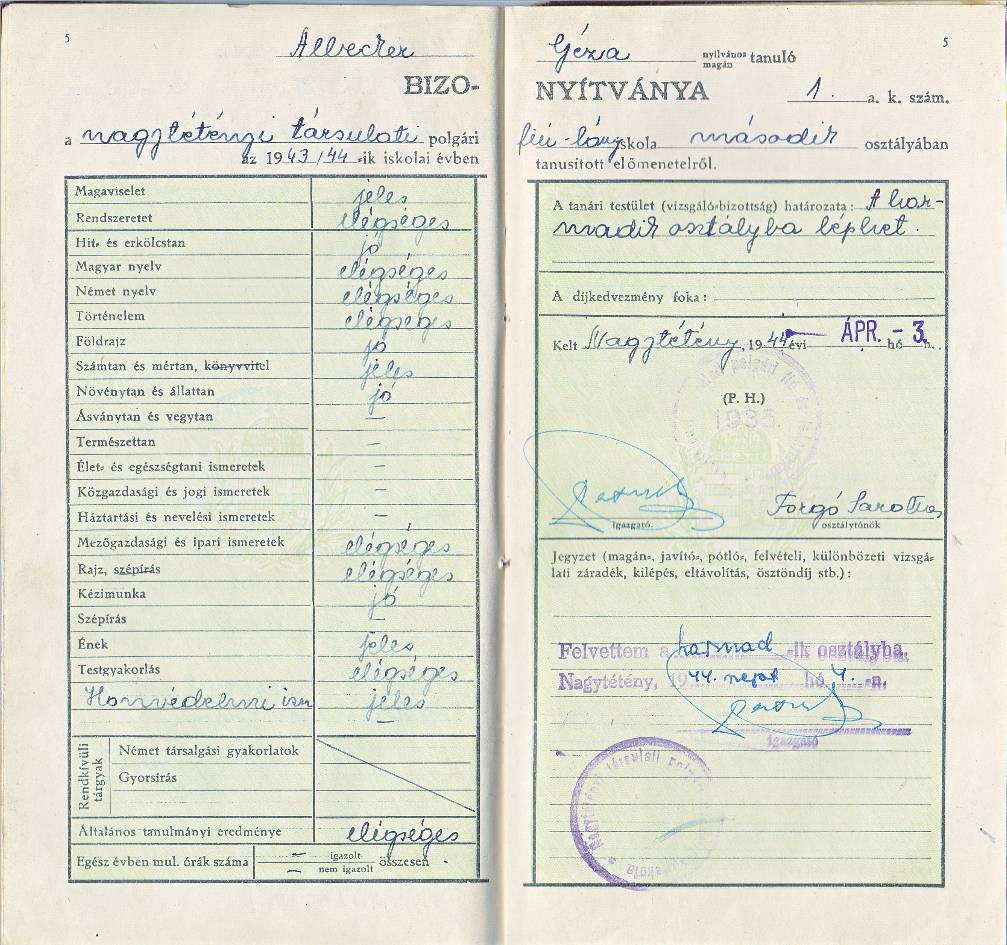 5
Allvecker
BIZO-
a nagytétényi társulati polgári
az 1943/44-ik iskolai évben
Magaviselet jeles
Rendszeretet elégséges
Hit- és erkölcstan jó
Magyar nyelv elégséges
Német nyelv elégséges
Történelem elégséges
Földrajz jó
Számtan és mértan, könyvvitel jeles
Növénytan és állattan jó
Ásványtan és vegytan —
Természettan —
Élet- és egészségtani ismeretek —
Közgazdasági és jogi ismeretek —
Háztartási és nevelési ismeretek —
Mezőgazdasági és ipari ismeretek elégséges
Rajz, szépírás elégséges
Kézimunka jó
Szépírás —
Ének jeles
Testgyakorlás elégséges
Honvédelmi ism jeles
—
Rendkívüli tárgyak
Német társalgási gyakorlatok
Gyorsírás
Általános tanulmányi eredménye elégséges
Egész évben mul. órák száma — igazolt
— nem igazolt
összesen -
5
Géza nyilvános magán tanuló
NYÍTVÁNYA 1. a. k. szám.
fiú-leány iskola második osztályában
tanusított előmenetelről.
A tanári testület (vizsgáló-bizottság) határozata: A har-
madik osztályba léphet.
A díjkedvezmény foka:
Kelt Nagytétény, 1944 évi ÁPR. - 3. hó n.
(P. H.)
1935.
igazgató.
Forgó Sarolta
osztályfőnök
Jegyzet (magán-, javító-, pótló-, felvételi, különbözeti vizsgá-
lati záradék, kilépés, eltávolítás, ösztöndíj stb.):
Felvettem a harmad -ik osztályba.
Nagytétény, 1944. hó 4. -n.
igazgató
Nagytétényi társulati